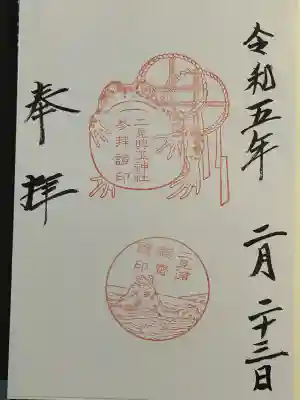 令和五年 二月二十三日
二見興玉神社
参拝證印
奉拝
二見浦